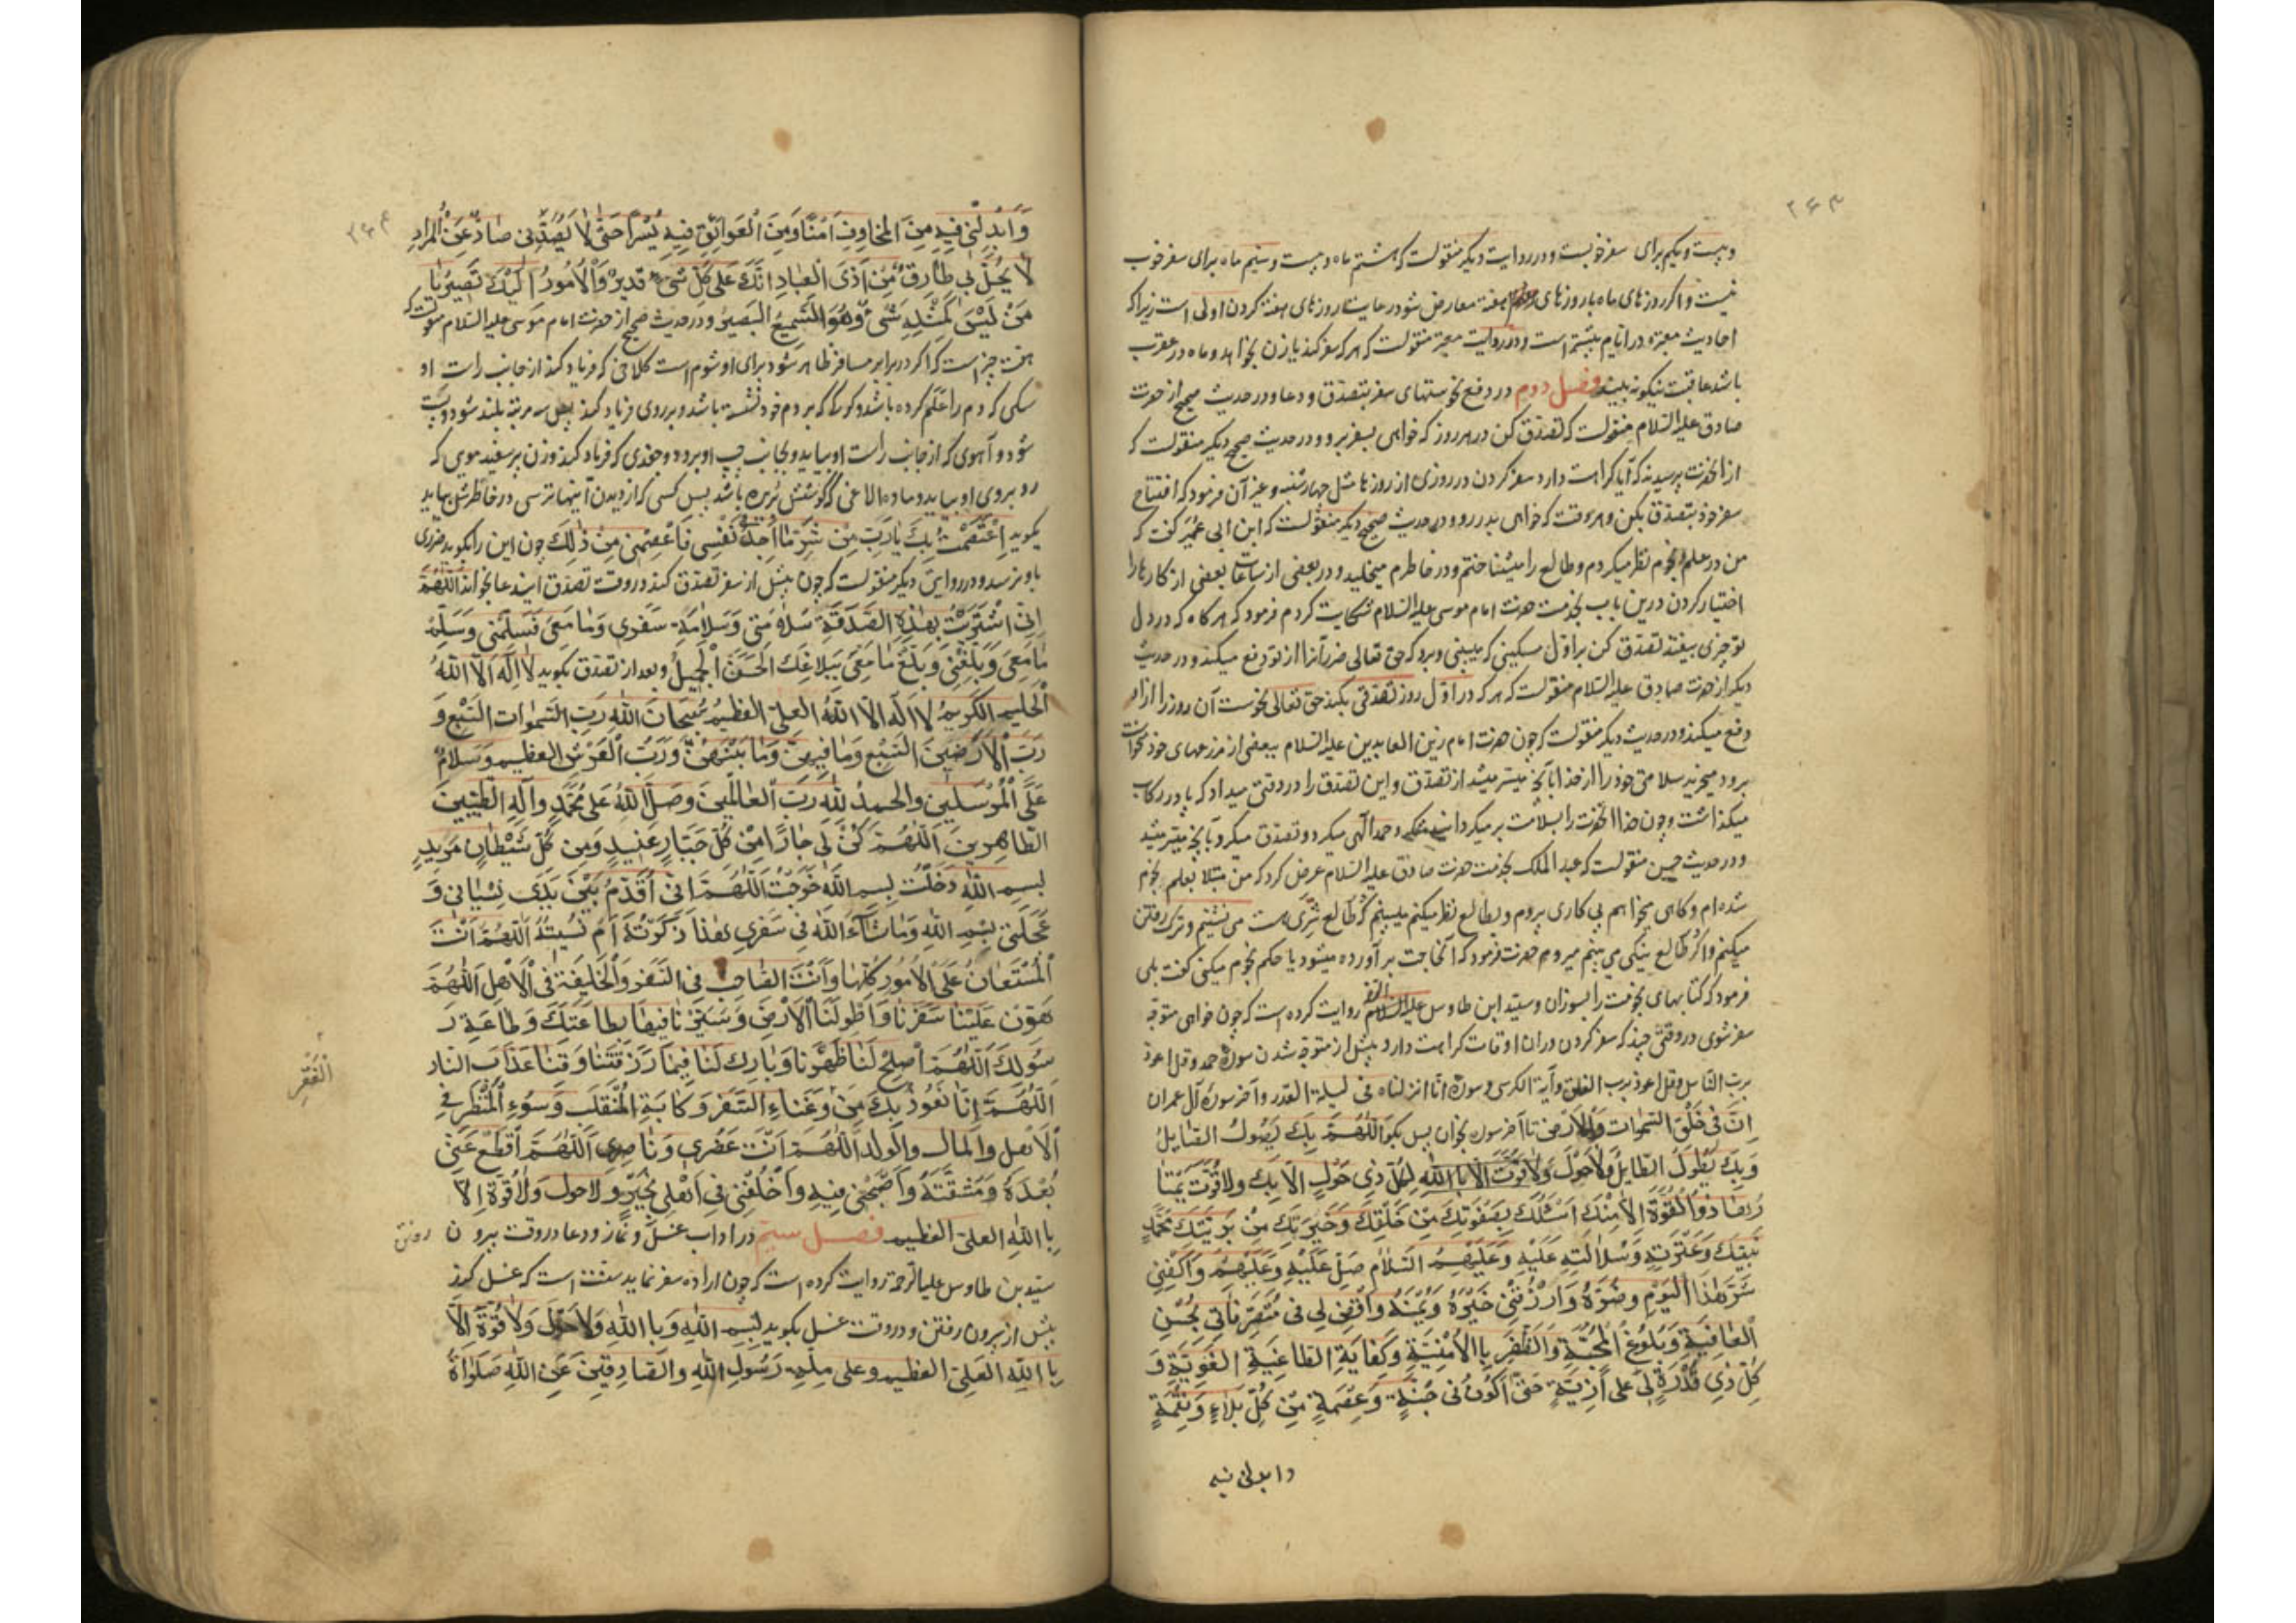 ۲۶۳
و بیست و یکم برای سفر خوبست و در روایت دیگر منقولست که هشتم ماه و بیست و سیم ماه برای سفر خوب
نیست و اگر روزهای ماه با روزهای هفته معارض شود رعایت روزهای هفته کردن اولی است زیرا که
احادیث معتبره در ایام بیشتر است و در روایت معتبر منقولست که هر که سفر کند یا زن بخواهد و ماه در عقرب
باشد عاقبت نیکو نه بیند فصل دوم در دفع نحوستهای سفر بتصدق و دعا و در حدیث صحیح از حضرت
صادق علیه السلام منقولست که تصدق کن در هر روز که خواهی بسفر برو و در حدیث صحیح دیگر منقولست که
از انحضرت پرسیدند که آیا کراهت دارد سفر کردن در روزی از روزها مثل چهارشنبه و غیر آن فرمود که افتتاح
سفر خود بتصدق بکن و هر وقت که خواهی بدر رو و در حدیث صحیح دیگر منقولست که ابن ابی عمیر گفت که
من در علم نجوم نظر میکردم و طالع را میشناختم و در خاطرم میخلید و در بعضی از ساعات بعضی از کارها را
اختیار کردن درین باب بخدمت حضرت امام موسی علیه السلام شکایت کردم فرمود که هر گاه که در دل
تو چیزی بیفتد تصدق کن بر اول مسکینی که میبینی و برو که حق تعالی ضرر آنرا از تو دفع میکند و در حدیث
دیگر از حضرت صادق علیه السلام منقولست که هر که در اول روز تصدقی بکند حق تعالی نحوست آن روز را از او
دفع میکند و در حدیث دیگر منقولست که چون حضرت امام زین العابدین علیه السلام ببعضی از مزرعهای خود میخواست
برود میخرید سلامتی خود را از خدا بآنچه میسر میشد از تصدق و این تصدق را در وقتی میداد که پا در رکاب
میگذاشت و چون خدا انحضرت را بسلامت بر میگردانید حمد الهی میکرد و تصدق میکرد بآنچه میسر میشد
و در حدیث حسن منقولست که عبد الملک بخدمت حضرت صادق علیه السلام عرض کرد که من مبتلا بعلم نجوم
شده ام و گاهی میخواهم پی کاری بروم و بطالع نظر میکنم میبینم که طالع شری هست می نشینم و ترک رفتن
میکنم و اگر طالع نیکی می بینم میروم حضرت فرمود که آنحاجت بر آورده میشود یا حکم نجوم میکنی گفت بلی
فرمود که کتابهای نجومت را بسوزان و سید ابن طاوس علیه الرحمه روایت کرده است که چون خواهی متوجه
سفر شوی در وقتی چند که سفر کردن در ان اوقات کراهت دارد پیش از متوجه شدن سوره حمد و قل اعوذ
برب الناس و قل اعوذ برب الفلق و آیة الکرسی و سوره انا انزلناه فی لیلة القدر و آخر سوره آل عمران
اِنَّ فی خَلْقِ السَّمواتِ وَالاَرْضِ تا آخر سوره بخوان پس بگو اَللّهُمَّ بِكَ یَصُولُ الصّایِلُ
وَبِكَ یَطُولُ الطّایِلُ وَلاحَوْلَ لِكُلِّ ذی حَوْلٍ اِلاّ بِكَ وَلا قُوَّةَ یَمْتا
رُها ذُوالْقُوَّةِ اِلاّ مِنْكَ اَسْئَلُكَ بِصَفْوَتِكَ مِنْ خَلْقِكَ وَخِیَرَتِكَ مِنْ بَرِیَّتِكَ مُحَمَّدٍ
نَبِیِّكَ وَعِتْرَتِهِ وَسُلالَتِهِ عَلَیْهِ وَعَلَیْهِمُ السَّلامُ صَلِّ عَلَیْهِ وَعَلَیْهِمْ وَاكْفِنی
شَرَّهذَا الْیَوْمِ وَضَرَّهُ وَارْزُقْنی خَیْرَهُ وَیُمْنَهُ وَاقْضِ لی فی مُتَصَرَّفاتی بِحُسْنِ
الْعافِیَةِ وَبُلُوغِ الْمَحَبَّةِ وَالظَّفَرِ بِاالاُمْنِیَّةِ وَكِفایَةِ الطّاغِیَةِ الْغَوِیَّةِ وَ
كُلِّ ذی قُدْرَةٍ لی عَلی اَذِیَّةٍ حَتّی اَكُونَ فی جُنَّةٍ وَعِصْمَةٍ مِنْ كُلِّ بَلاءٍ وَنِقْمَةٍ
وابدلنی فیه
۲۶۴
وَاَبْدِلْنی فیهِ مِنَ الْمَخاوِفِ اَمْنًا وَمِنَ الْعَوائِقِ فیهِ یُسْرًا حَتّی لا یَصُدَّنی صادٌّ عَنِ الْمُرادِ
لا یَحُلَّ بی طارِقٌ مِنْ اَذَی الْعِبادِ اِنَّكَ عَلی كُلِّ شَیْ‌ءٍ قَدیرٌ وَالاُمُورُ اِلَیْكَ تَصیرُ یا
مَنْ لَیْسَ كَمِثْلِهِ شَیْ‌ءٌ وَهُوَ السَّمیعُ الْبَصیرُ و در حدیث صحیح از حضرت امام موسی علیه السلام منقولست که
هفت چیز است که اگر در برابر مسافر ظاهر شود برای او شوم است کلاغی که فریاد کند از جانب راست او
سگی که دم را علم کرده باشد و گرگ که بر دم خود نشسته باشد و بر روی فریاد کند پس سه مرتبه بلند شود و پست
شود و آهوی که از جانب راست او بیاید و بجانب چپ او برود و جغدی که فریاد کند و زن پر سفید موی که
رو بروی او بیاید و ماده الاغی که گوشش بریده باشد پس کسی که از دیدن اینها ترسی در خاطرش بهاید
بگوید اِعْتَصَمْتُ بِكَ یا رَبِّ مِنْ شَرِّ ما اَجِدُ فی نَفْسی فَاعْصِمْنی مِنْ ذلِكَ چون این را بگوید ضرری
باو نرسد و در روایتی دیگر منقولست که چون پیش از سفر تصدق کند در وقت تصدق ایندعا بخواند اَللّهُمَّ
اِنِّی اشْتَرَیْتُ بِهذِهِ الصَّدَقَةِ سَلامَتی وَسَلامَةَ سَفَری وَما مَعِیَ فَسَلِّمْنی وَسَلِّمْ
ما مَعِیَ وَبَلِّغْنی وَبَلِّغْ ما مَعِیَ بِبَلاغِكَ الْحَسَنِ الْجَمیلِ و بعد از تصدق بگوید لا اِلهَ اِلاَّ اللهُ
الْحَلیمُ الْكَریمُ لا اِلهَ اِلاَّ اللهُ الْعَلِیُّ الْعَظیمُ سُبْحانَ اللهِ رَبِّ السَّمواتِ السَّبْعِ وَ
رَبِّ الاَرَضینَ السَّبْعِ وَما فیهِنَّ وَما بَیْنَهُنَّ وَرَبِّ الْعَرْشِ الْعَظیمِ وَسَلامٌ
عَلَی الْمُرْسَلینَ وَالْحَمْدُ لِلّهِ رَبِّ الْعالَمینَ وَصَلَّی اللهُ عَلی مُحَمَّدٍ وَآلِهِ الطَّیِّبینَ
الطّاهِرینَ اَللّهُمَّ كُنْ لی جارًا مِنْ كُلِّ جَبّارٍ عَنیدٍ وَمِنْ كُلِّ شَیْطانٍ مَریدٍ
بِسْمِ اللهِ دَخَلْتُ بِسْمِ اللهِ خَرَجْتُ اَللّهُمَّ اِنّی اُقَدِّمُ بَیْنَ یَدَیْ نِسْیانی وَ
عَجَلَتی بِسْمِ اللهِ وَما شاءَ اللهُ فی سَفَری هذا ذَكَرْتُهُ اَمْ نَسیتُهُ اَللّهُمَّ اَنْتَ
الْمُسْتَعانُ عَلَی الاُمُورِ كُلِّها وَاَنْتَ الصّاحِبُ فِی السَّفَرِ وَالْخَلیفَةُ فِی الاَهْلِ اَللّهُمَّ
هَوِّنْ عَلَیْنا سَفَرَنا وَاطْوِ لَنَا الاَرْضَ وَسَیِّرْنا فیها بِطاعَتِكَ وَطاعَةِ رَ
سُولِكَ اَللّهُمَّ اَصْلِحْ لَنا ظَهْرَنا وَبارِكْ لَنا فیما رَزَقْتَنا وَقِنا عَذابَ النّارِ
اَللّهُمَّ اِنّا نَعُوذُ بِكَ مِنْ وَعْثاءِ السَّفَرِ وَكَابَةِ الْمُنْقَلَبِ وَسُوءِ الْمَنْظَرِ فِی
الاَهْلِ وَالْمالِ وَالْوَلَدِ اَللّهُمَّ اَنْتَ عَضُدی وَناصِری اَللّهُمَّ اقْطَعْ عَنّی
بُعْدَهُ وَمَشَقَّتَهُ وَاصْحَبْنی فیهِ وَاخْلُفْنی فی اَهْلی بِخَیْرٍ وَلا حَوْلَ وَلا قُوَّةَ اِلاّ
بِااللهِ الْعَلِیِّ الْعَظیمِ فصل سیم در اداب غسل و نماز و دعا در وقت بیرون رفتن
سید بن طاوس علیه الرحمة روایت کرده است که چون اراده سفر نماید سنت است که غسل کند
پیش از بیرون رفتن و در وقت غسل بگوید بِسْمِ اللهِ وَبِااللهِ وَلا حَوْلَ وَلا قُوَّةَ اِلاّ
بِااللهِ الْعَلِیِّ الْعَظیمِ وَعَلی مِلَّةِ رَسُولِ اللهِ وَالصّادِقینَ عَنِ اللهِ صَلَواةُ